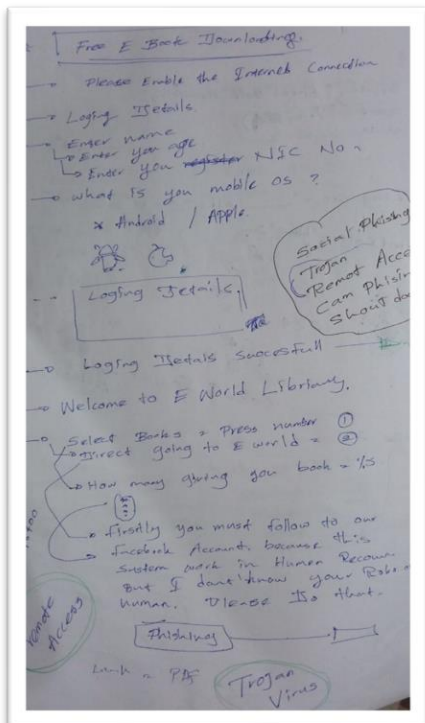 Free E Book Downloading.
Please Enable the Internet Connection
Loging Details
Enter name
Enter you age
Enter you register NIC No
what Is you mobile OS ?
* Android / Apple
Social Phising
Trojan
Remot Acce
Cam Phising
Shout do
Loging Details.
Loging Detals Succesfull
Welcome to E World Library.
Select Books = Press number ①
Direct going to E world = ②
How many giving you book = %s
firstly you must follow to our
facebook Account. because this
System work in Human
But I dont know your Robo
human. Please Do that.
remote
Access
Phishing
Link = PDF
Trojan
Virus